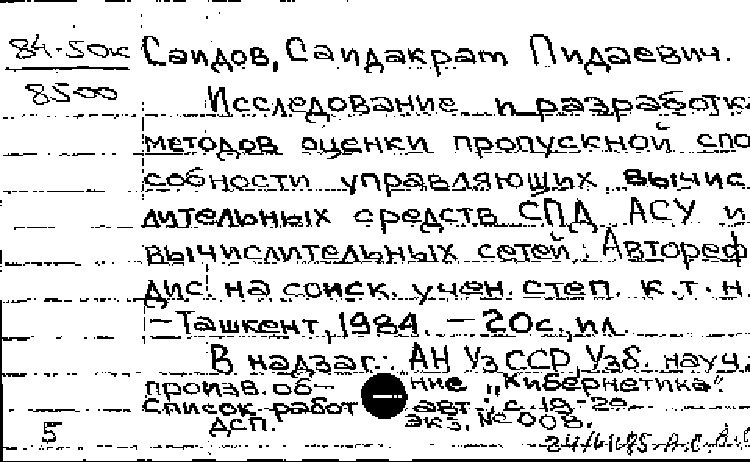 84-50к Саидов, Саидакрат Пидаевич.
8500 Исследование и разработка
методов оценки пропускной спо
собности управляющих вычис
лительных средств СПД АСУ и
вычислительных сетей: Автореф
дис. на соиск. учен. степ. к.т.н.
-Ташкент, 1984. - 20с., ил.
В надзаг.: АН УзССР, Узб. науч.
произв. об- ние "Кибернетика".
Список работ авт.: с. 19-20
ДСП. экз. № 008.
5